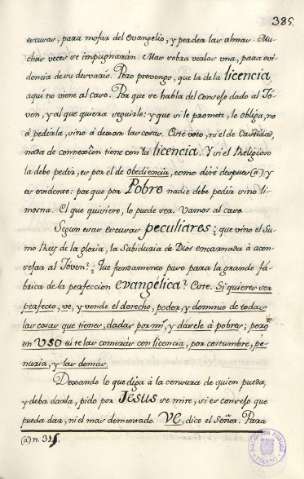 385.
escusar, para mofar del Evangelio, y perder las almas. Mu-
chas veces se impugnarán. Mas estas valer una, para evi-
dencia de su desvario. Pero prevengo, que la de la licencia
aquí no viene al caso. Por que se habla del Consejo dado al Jó-
ven, y al que quiera seguirle: y que si le promete, le obliga, no
á pedirla, sino á dexar las cosas. Este voto, ni el de Castidad,
nota de connexîon tiene con la licencia. Y si el Religioso
la debe pedir, es por el de obediencia, como diré despues (a) y
es evidente: por que por Pobre nadie debe pedir sino li-
mosna. El que quisiere, lo puede ver. Vamos al caso
Segun estas escusas peculiares; que vino el Su-
mo Rey de la gloria, la Sabiduria de Dios encarnada á acon-
sejar al Jóven? Que fundamento puso para la grande fá-
brica de la perfeccion evangélica? Este. Si quieres ser
perfecto, ve, y vende el derecho, poder, y dominio de todas
las cosas que tienes, dadas por mí, y dárele á pobres; pero
en USO si te las comiere con licencia, por costumbre, pe-
nuria, y las demás.
Dexando lo que diga á la censura de quien pueda,
y deba darla, pido por Jesus se mire, si es consejo que
pueda dar, ni el mas demasiado. VE, dice el Señor. Para
(a) n. 335.